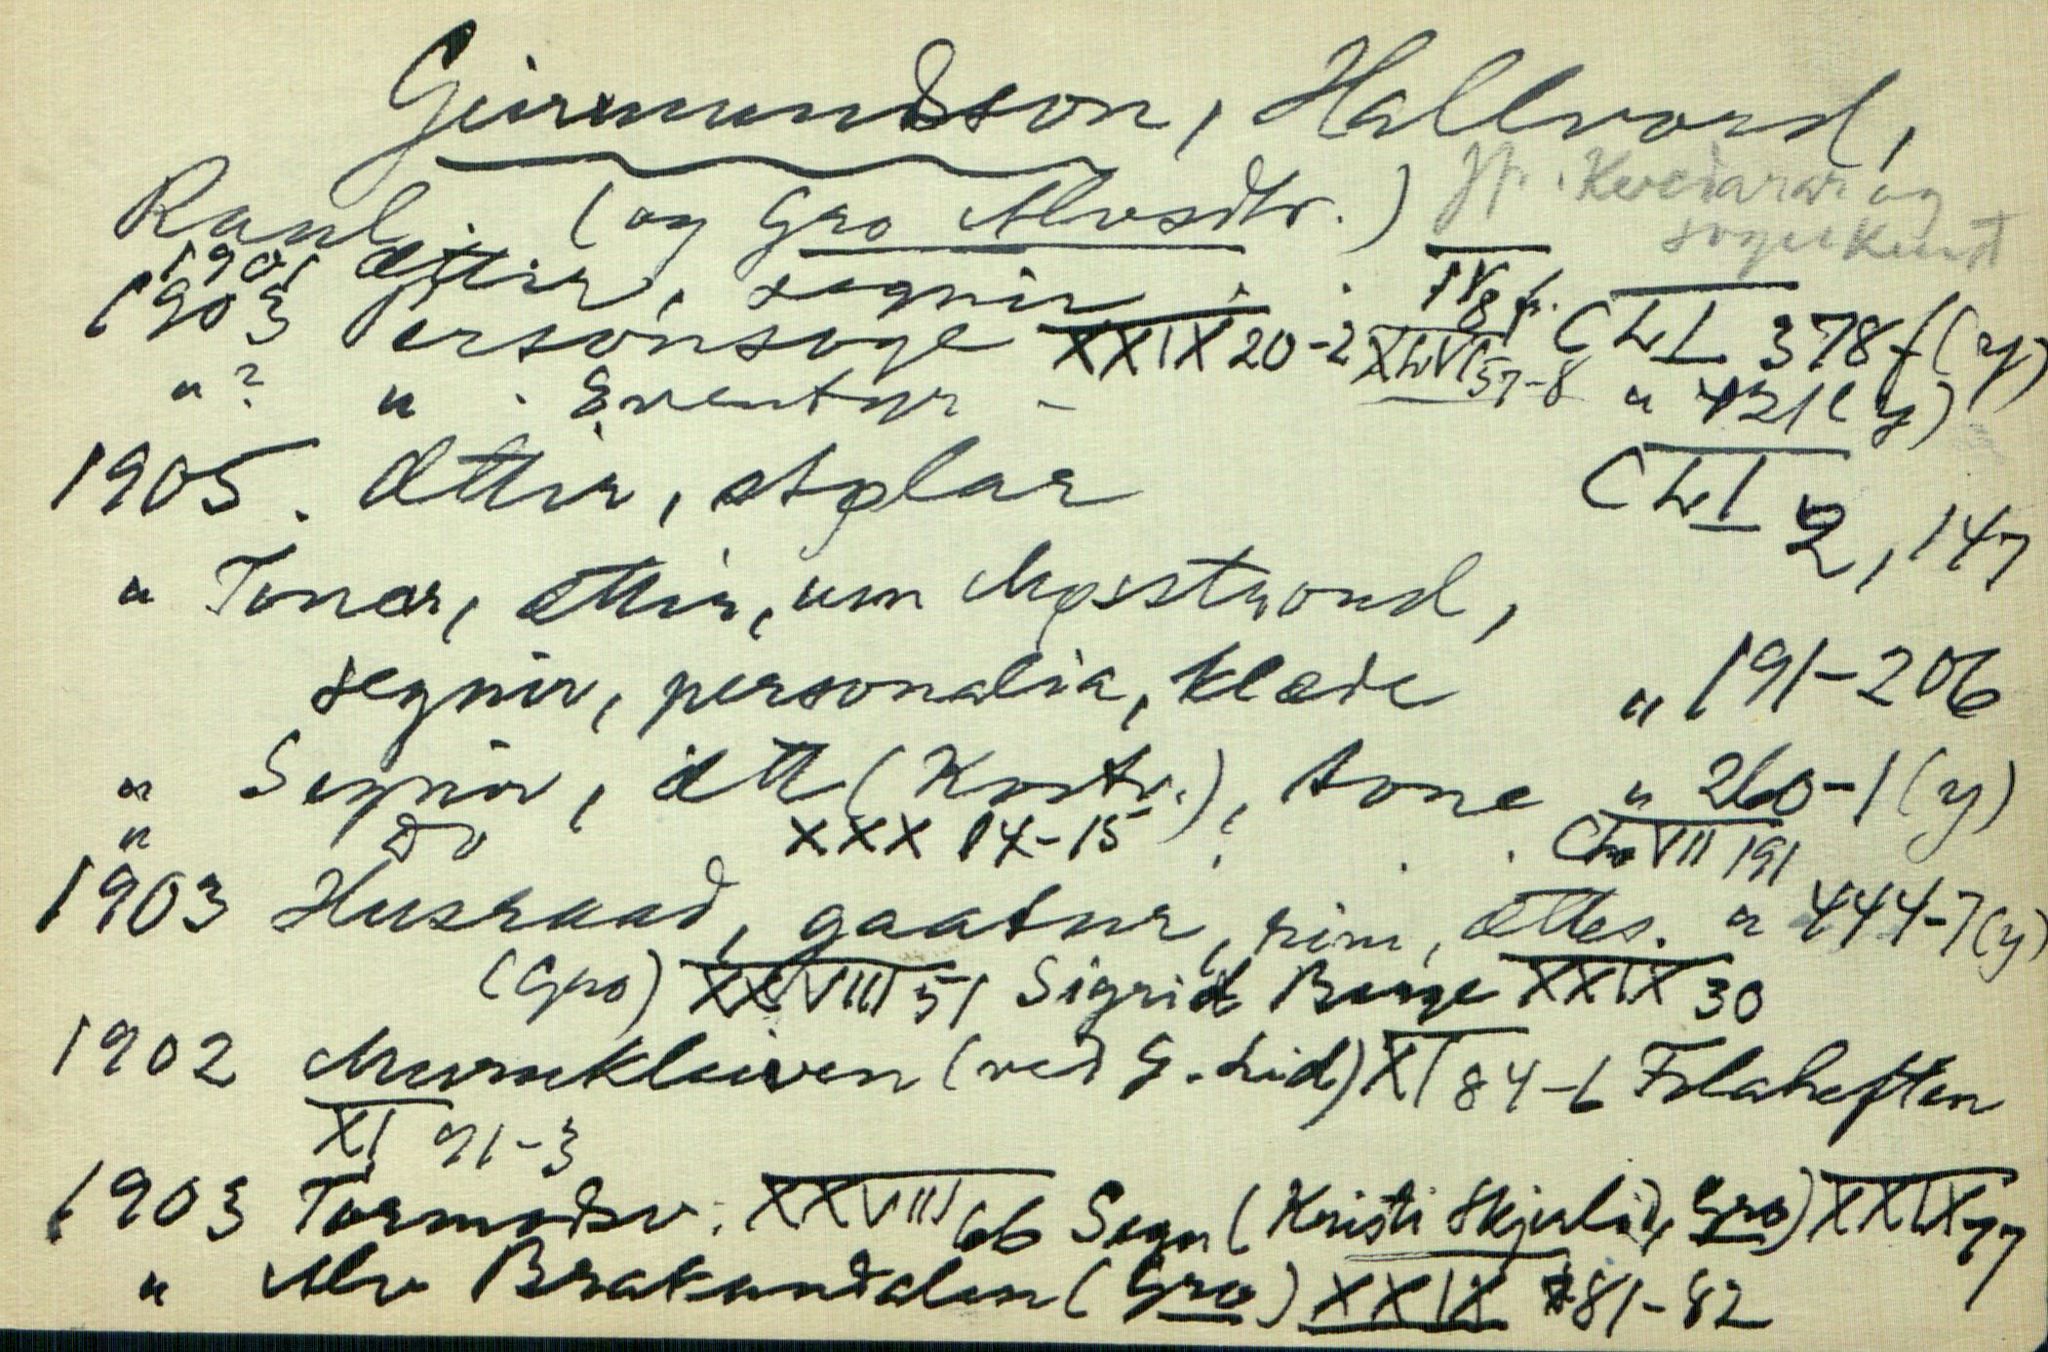 Geirmundson, Hallvord,
Rauland. (og Gro Alvsdtr.) Jfr. Kvedarar og
sogekunst
1901 Ættir, segnir . . IV 8 fr.
1903 Personsoge XXIX 20-2 XLVI 57-8 CLI 378 f (y)
" ? " . Eventyr - " 421 (y)
1905. Ættir, stølar CLI 2, 147
" Tonar, ættir, um Møsstrond,
segnir, personalia, klæde " 191-206
" Segnir, ætt (Kostv.), tone " 260-1 (y)
" do XXX 14-15 . . . CLVIII 191
1903 Husraad, gaatur, rim, ættes. " 444-7 (y)
(Gro) XXVIII 51 Sigrid Bouge XXIX 30
1902 Murukleiven (ved G. Lid) XI 84-6 Folaheften
XI 91-3
1903 Tormodsv. XXVIII 66 Segn (Kristi Skjerlid, Gro) XXIX 77
" Alv Brakandalen (Gro) XXIX 81-82